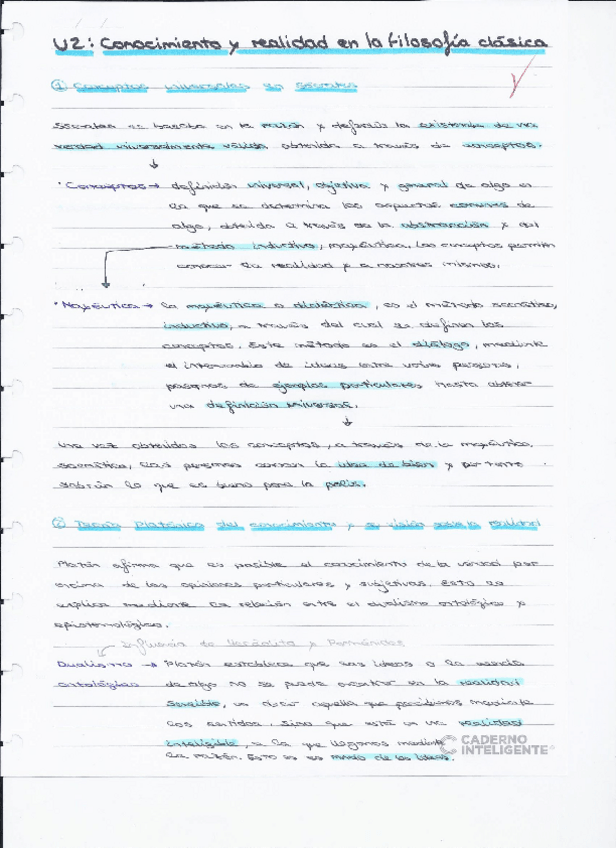 U2: Conocimiento y realidad en la filosofía clásica
① Conceptos universales en Sócrates
Sócrates se basaba en la razón y defendía la existencia de una
verdad universalmente válida, obtenida a través de conceptos.
· Conceptos → definición universal, objetiva y general de algo en
la que se determina los aspectos comunes de
algo, obtenida a través de la abstracción y del
método inductivo, mayéutica. Los conceptos permiten
conocer la realidad y a nosotros mismos.
· Mayéutica → la mayéutica o dialéctica, es el método socrático,
inductivo, a través del cual se definen los
conceptos. Este método es el diálogo, mediante
el intercambio de ideas entre varias personas,
pasamos de ejemplos particulares hasta obtener
una definición universal.
Una vez obtenidos los conceptos, a través de la mayéutica
socrática, las personas conocen la idea de bien y por tanto
sabrán lo que es bueno para la polis.
② Teoría Platónica del conocimiento y su visión sobre la realidad
Platón afirma que es posible el conocimiento de la verdad por
encima de las opiniones particulares y subjetivas. Esto se
explica mediante la relación entre el dualismo ontológico y
epistemológico.
Influencia de Heráclito y Parménides
Dualismo → Platón establece que las ideas o la esencia
ontológico de algo no se puede encontrar en la realidad
sensible, es decir aquella que percibimos mediante
los sentidos. Sino que está en una realidad
inteligible, a la que llegamos mediante
la razón. Esto es es mundo de las ideas.
CADERNO
INTELIGENTE®